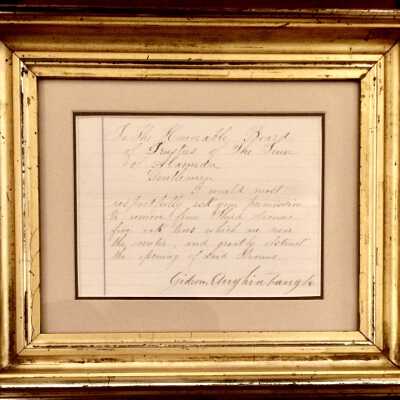 To the Honorable Board
of Trustees of The Town
of Alameda
Gentlemen
I would most
respectfully ask your permission
to remove from Third Avenue
five oak trees which are near
the center, and greatly obstruct
the opening of said Avenue.
Gideon Aughinbaugh